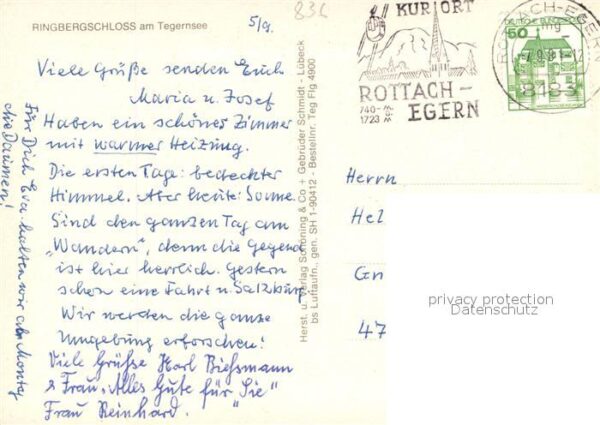 RINGBERGSCHLOSS am Tegernsee
5/9.
83L
KURORT
ROTTACH-
EGERN
740-
1723
ROTTACH-EGERN
-7.9.81-12
8183
DEUTSCHE BUNDESPOST
50
Viele Grüße senden Euch
Maria u. Josef
Haben ein schönes Zimmer
mit warmer Heizung.
Die ersten Tage: bedeckter
Himmel. Aber heute: Sonne.
Sind den ganzen Tag am
„Wandern", denn die Gegend
ist hier herrlich. Gestern
schon eine Fahrt n. Salzburg.
Wir werden die ganze
Umgebung erforschen!
Viele Grüße Karl Bießmann
& Frau. „Alles Gute für Sie"
Frau Reinhard."
Für Dich Eva halten wir am Montag
die Daumen!
Herst. u. Verlag Schöning & Co + Gebrüder Schmidt - Lübeck
bs Luftaufn., gen. SH 1-90412 - Bestellnr. Teg Flg 4900
Herrn
Hel
Gr
47
privacy protection
Datenschutz